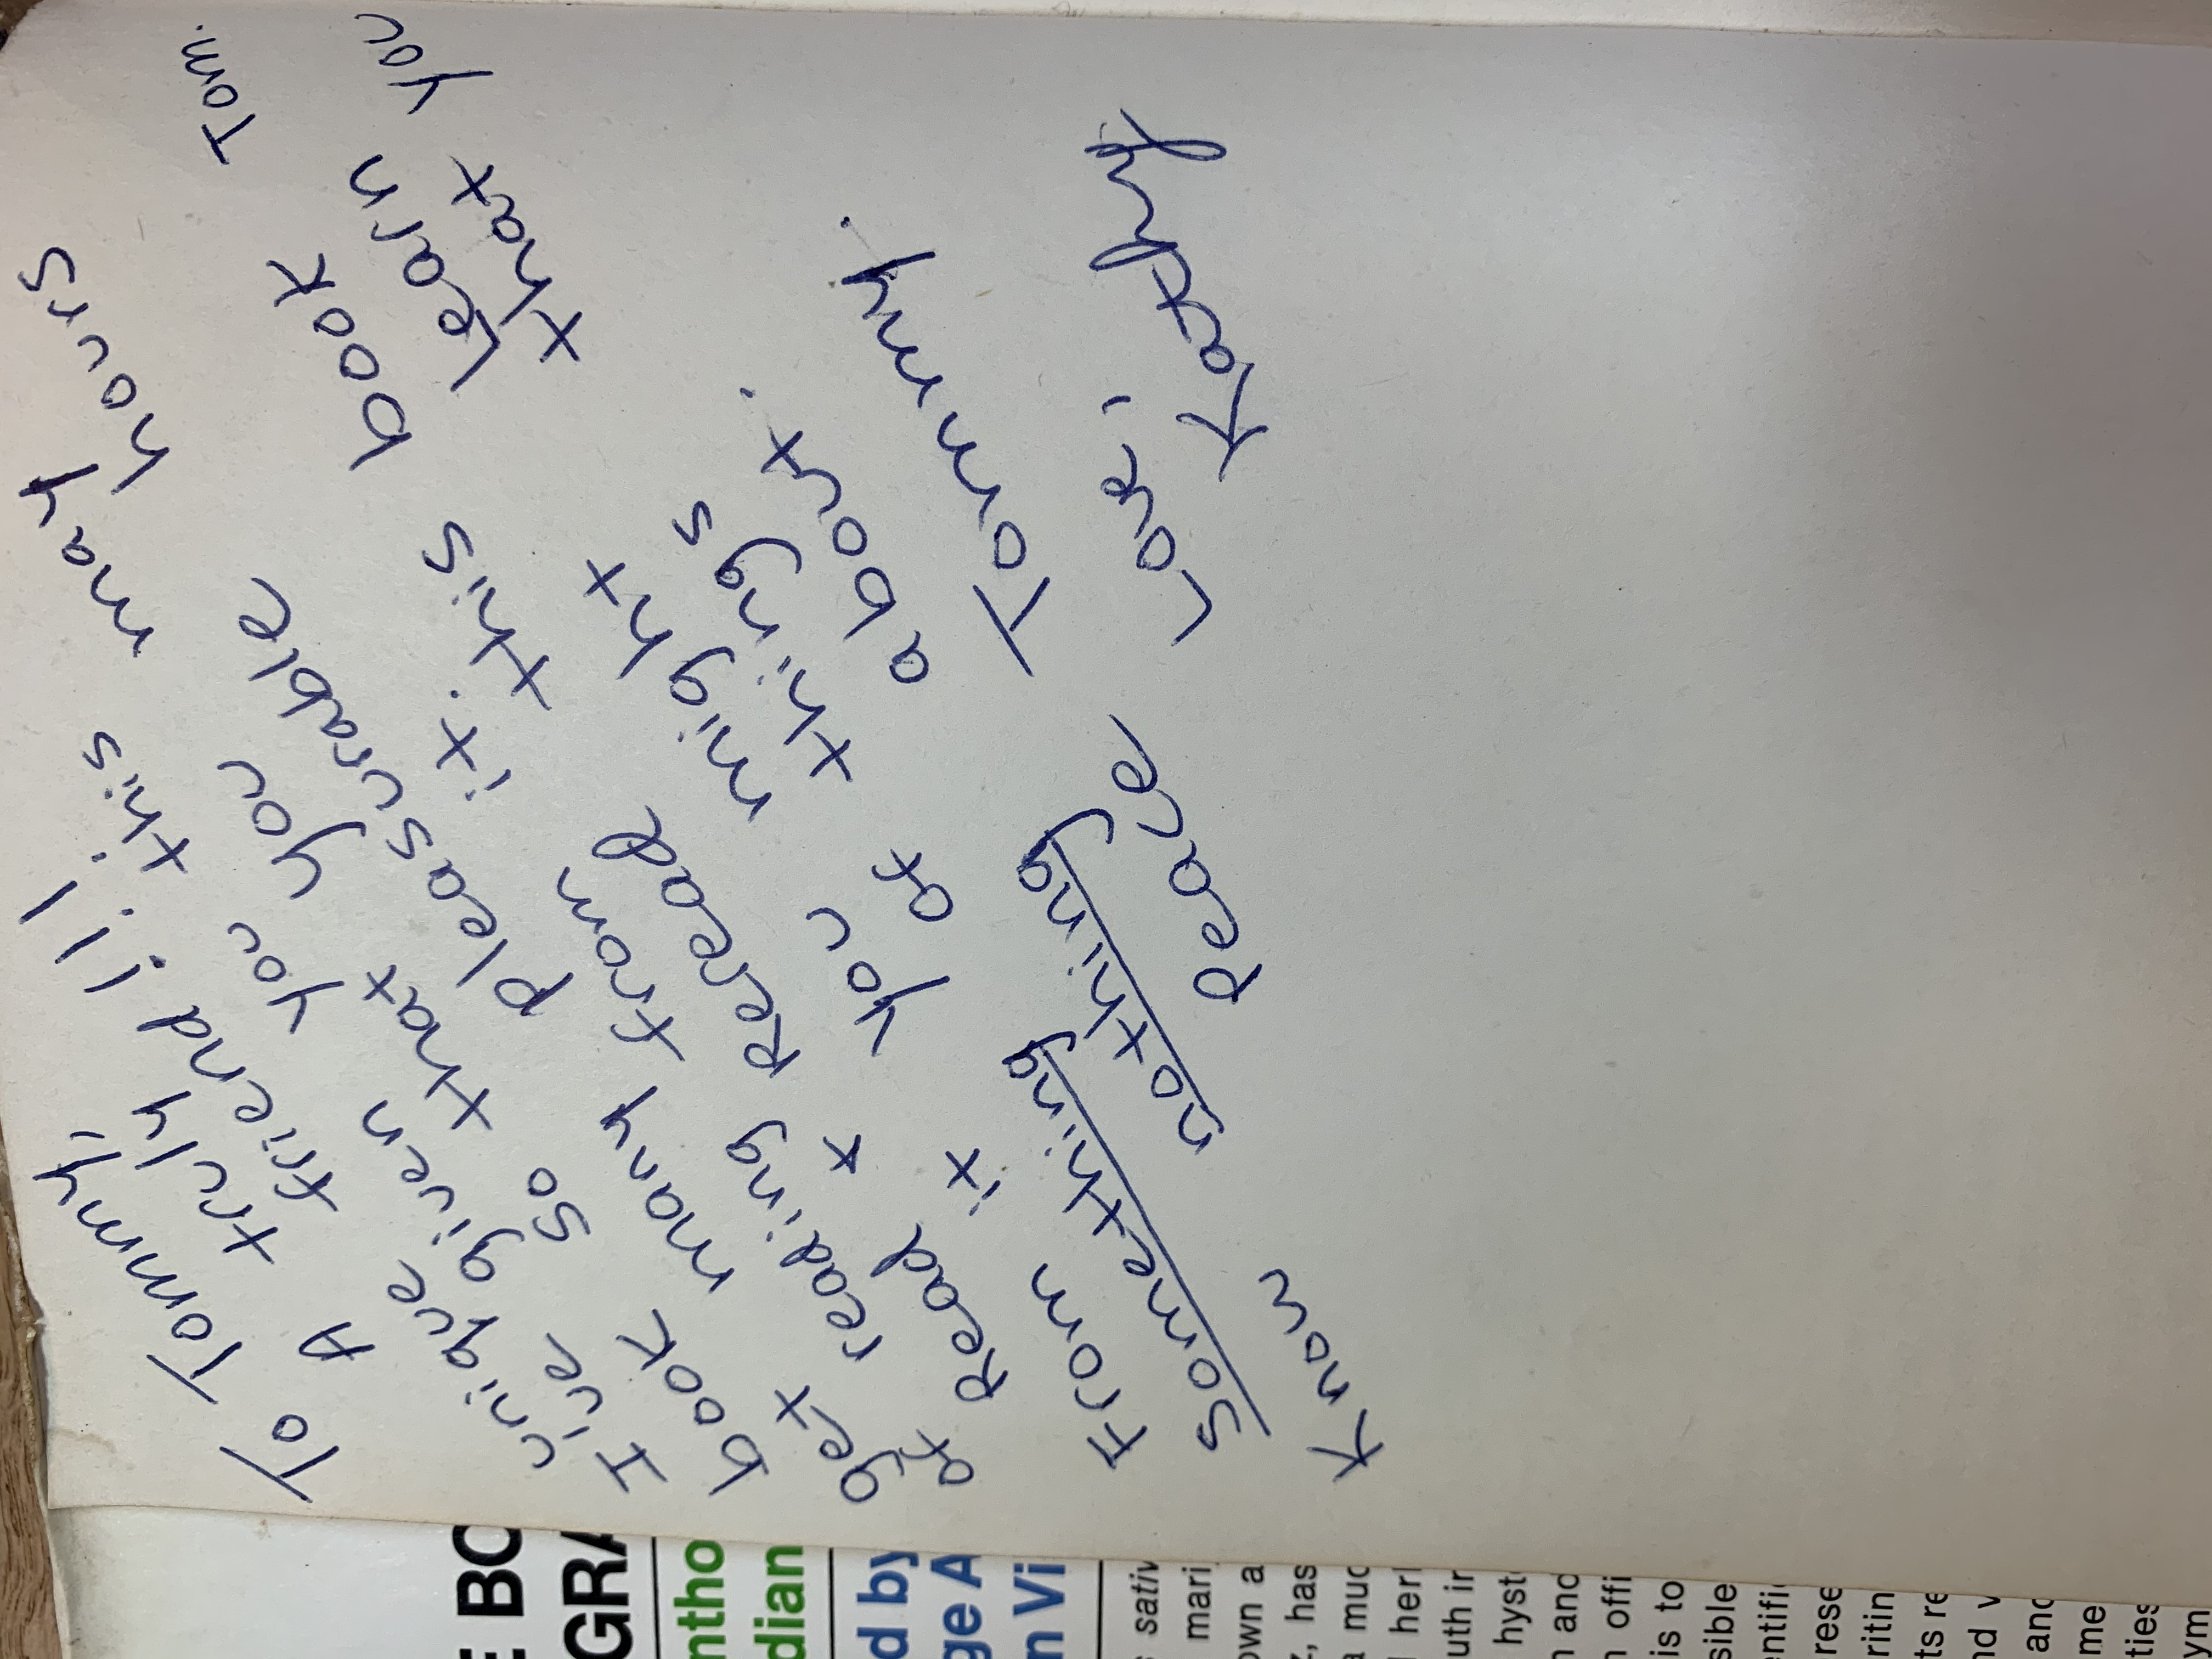 E BO
GRA
ntho
dian
d by
ge A
n Vi
sativ
mari
own a
z, has
a muc
her
uth in
hyst
n and
n offi
is to
sible
entifi
rese
ritin
ts re
nd
and
me
ties
ym
To Tommy,
A truly
unique friend!!!
I've given you this
book so that you may
get many pleasurable hours
of reading from it.
Read + Reread this book Tom.
From it you might Learn
Something of things that you
Know nothing about.
Peace Tommy.
Love,
Kathy